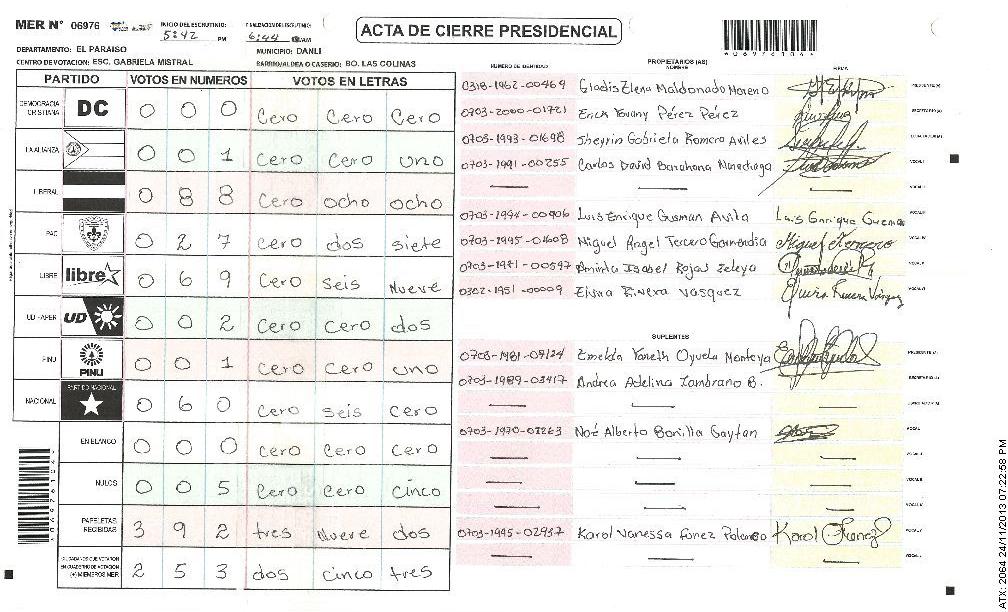 MER N° 06976
INICIO DEL ESCRUTINIO:
5:42 PM
FINALIZACION DEL ESCRUTINIO:
6:44
ACTA DE CIERRE PRESIDENCIAL
DEPARTAMENTO: EL PARAISO
MUNICIPIO: DANLI
CENTRO DE VOTACION: ESC. GABRIELA MISTRAL
BARRIO/ALDEA O CASERIO: BO. LAS COLINAS
PARTIDO VOTOS EN NUMEROS VOTOS EN LETRAS
DEMOCRACIA CRISTIANA DC 0 0 0 Cero Cero Cero
LA ALIANZA 0 0 1 Cero Cero uno
LIBERAL 0 8 8 Cero ocho ocho
PAC 0 2 7 Cero dos siete
LIBRE libre 0 6 9 Cero seis Nueve
UD - FAPER UD 0 0 2 Cero Cero dos
PINU PINU 0 0 1 Cero Cero uno
NACIONAL PARTIDO NACIONAL 0 6 0 Cero seis Cero
EN BLANCO 0 0 0 Cero Cero Cero
NULOS 0 0 5 Cero Cero cinco
PAPELETAS RECIBIDAS 3 9 2 tres Nueve dos
CIUDADANOS QUE VOTARON EN CUADERNO DE VOTACION (+) MIEMBROS MER 2 5 3 dos cinco tres
NUMERO DE IDENTIDAD PROPIETARIOS (AS) NOMBRE FIRMA
0318-1962-00469 Gladis Elena Maldonado Moreno PRESIDENTE (A)
0703-2000-01721 Erick Yovany Pérez Pérez SECRETARIO (A)
0703-1993-01698 Sheyrin Gabriela Romero Aviles
0703-1991-00255 Carlos David Barahona VOCAL I
VOCAL II
0703-1994-00906 Luis Enrique Gusman Avila Luis Enrique
0703-1995-01608 Miguel Angel Tercero
0703-1971-00597 Aminta Isabel Rojas Zelaya
0302-1951-00009 Elvira Rivera Vasquez
SUPLENTES
0703-1981-04124 Emelda Yaneth Oyuela Montoya PRESIDENTE (A)
0703-1989-03417 Andrea Adelina Zambrano B. SECRETARIO (A)
0703-1970-01263 Noé Alberto Bonilla Gaytan VOCAL
0703-1995-02937 Karol Vanessa Funez Palencia Karol Funez
ATX: 2064 24/11/2013 07:22:58 PM